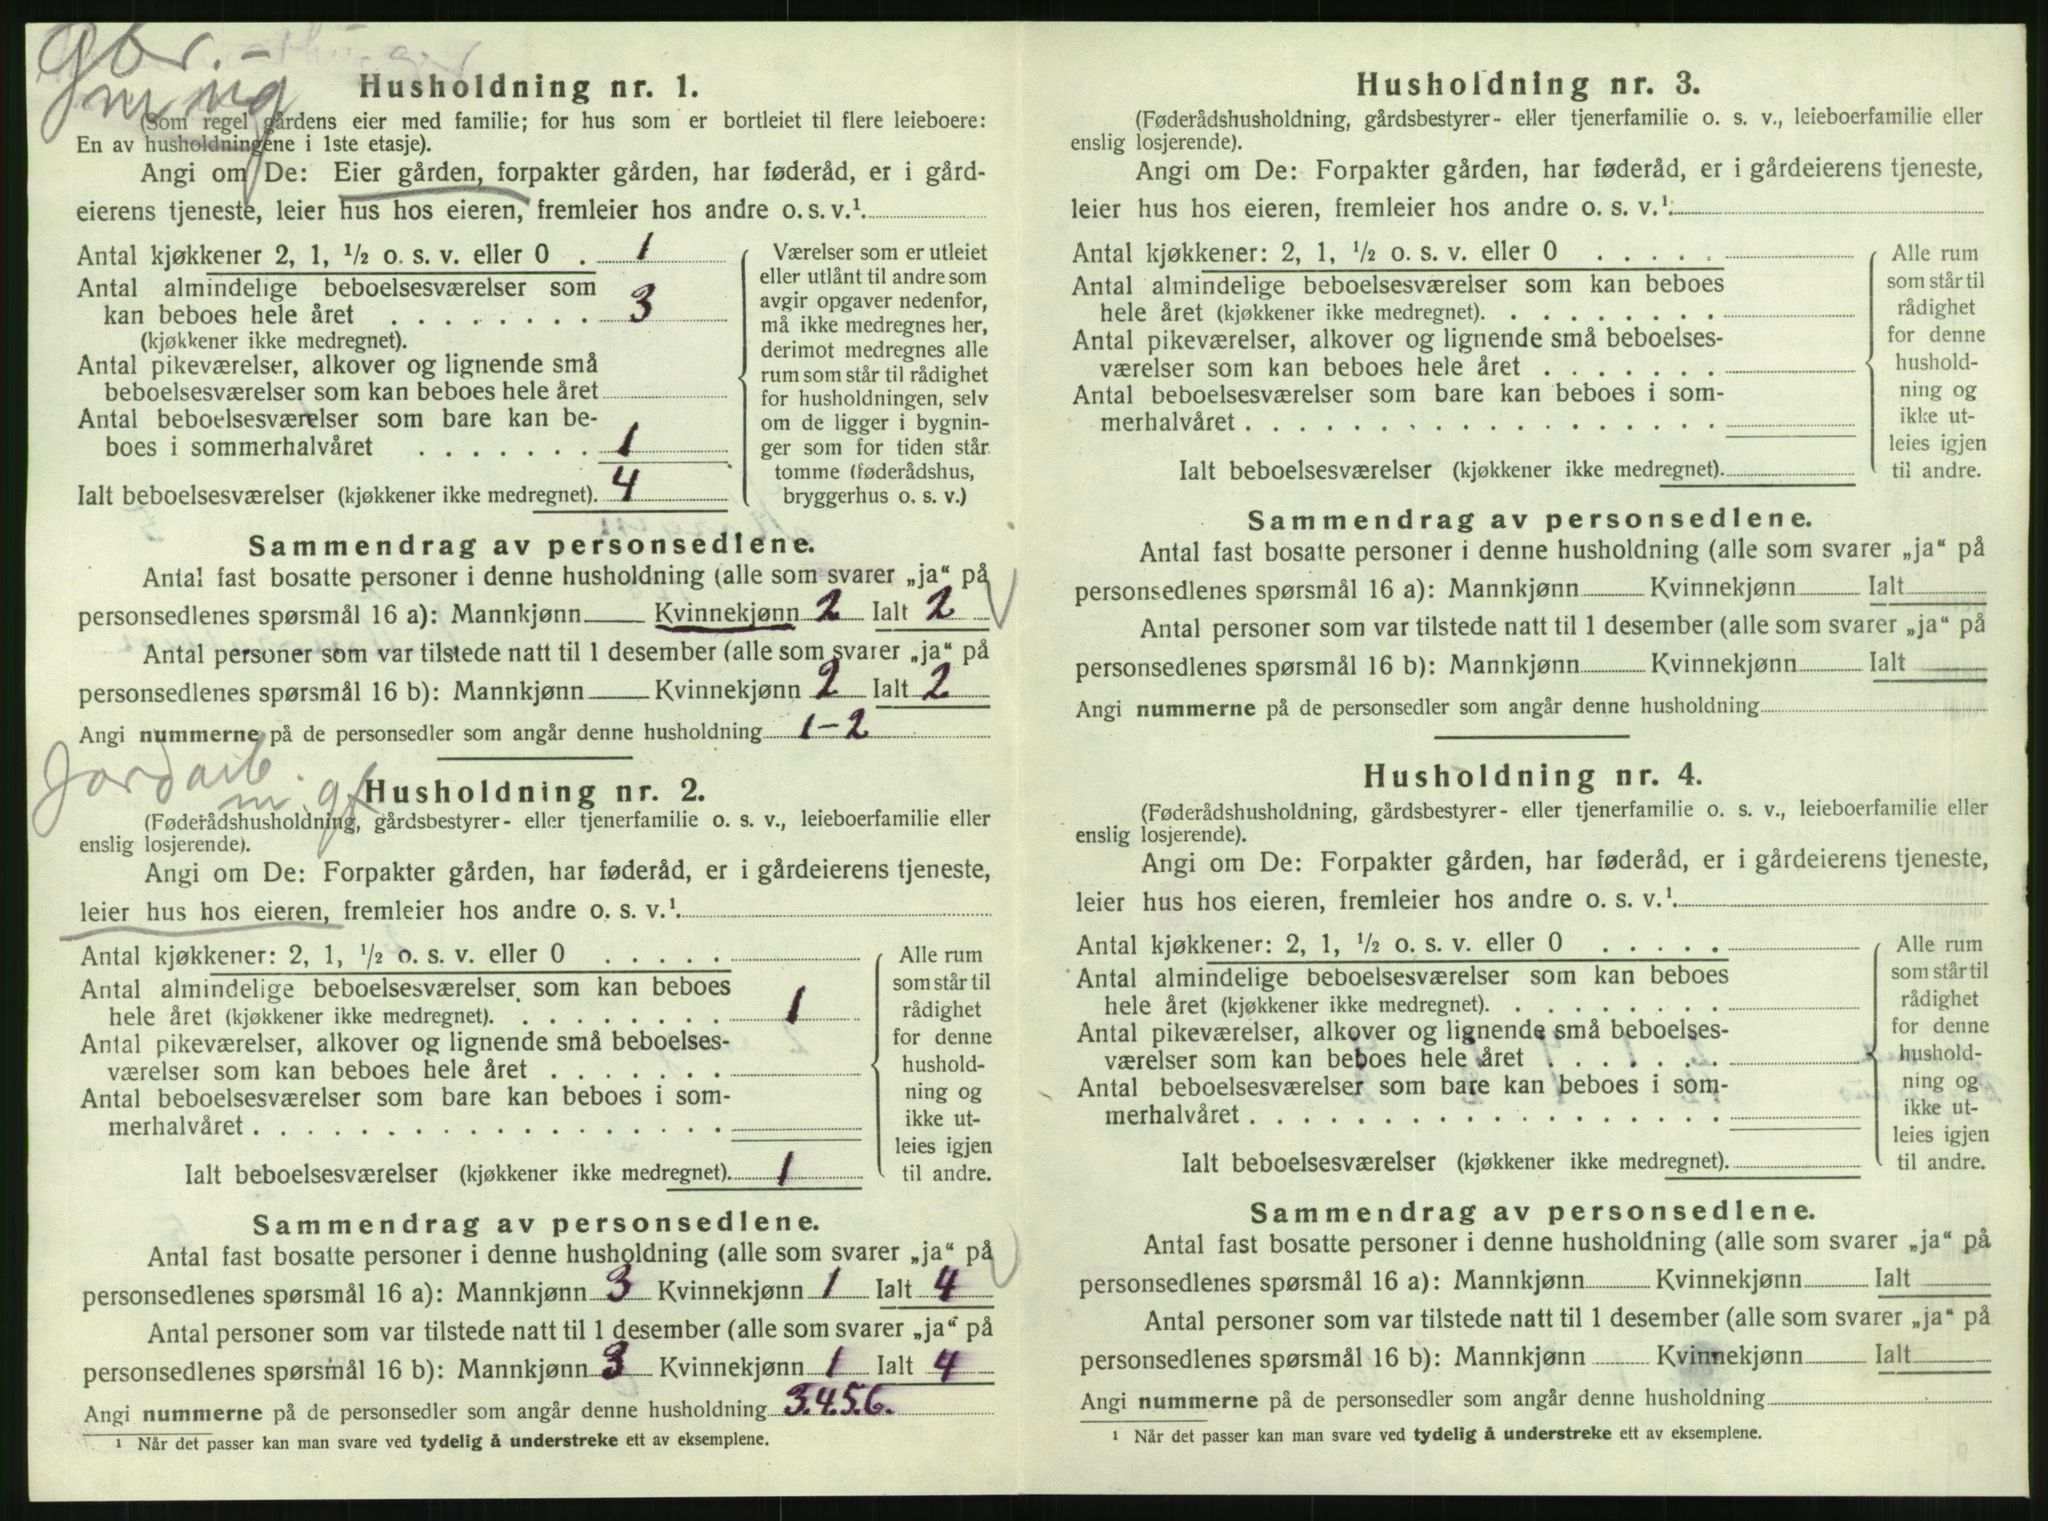 Gbr. -
m ug
Husholdning nr. 1.
(Som regel gårdens eier med familie; for hus som er bortleiet til flere leieboere:
En av husholdningene i 1ste etasje).
Angi om De: Eier gården, forpakter gården, har føderåd, er i gård-
eierens tjeneste, leier hus hos eieren, fremleier hos andre o. s. v.¹.
Antal kjøkkener 2, 1, ½ o. s. v. eller 0 . 1
Antal almindelige beboelsesværelser som
kan beboes hele året . . . . . . . . 3
(kjøkkener ikke medregnet).
Antal pikeværelser, alkover og lignende små
beboelsesværelser som kan beboes hele året
Antal beboelsesværelser som bare kan be-
boes i sommerhalvåret . . . . . . . 1
Ialt beboelsesværelser (kjøkkener ikke medregnet). 4
Værelser som er utleiet
eller utlånt til andre som
avgir opgaver nedenfor,
må ikke medregnes her,
derimot medregnes alle
rum som står til rådighet
for husholdningen, selv
om de ligger i bygnin-
ger som for tiden står
tomme (føderådshus,
bryggerhus o. s. v.)
Sammendrag av personsedlene.
Antal fast bosatte personer i denne husholdning (alle som svarer „ja“ på
personsedlenes spørsmål 16 a): Mannkjønn Kvinnekjønn 2 Ialt 2
Antal personer som var tilstede natt til 1 desember (alle som svarer „ja“ på
personsedlenes spørsmål 16 b): Mannkjønn Kvinnekjønn 2 Ialt 2
Angi nummerne på de personsedler som angår denne husholdning 1-2
Jordarb.
m gf
Husholdning nr. 2.
(Føderådshusholdning, gårdsbestyrer- eller tjenerfamilie o. s. v., leieboerfamilie eller
enslig losjerende).
Angi om De: Forpakter gården, har føderåd, er i gårdeierens tjeneste,
leier hus hos eieren, fremleier hos andre o. s. v.¹.
Antal kjøkkener: 2, 1, ½ o. s. v. eller 0 . . . . .
Antal almindelige beboelsesværelser som kan beboes
hele året (kjøkkener ikke medregnet). . . . . . . . . 1
Antal pikeværelser, alkover og lignende små beboelses-
værelser som kan beboes hele året . . . . . . .
Antal beboelsesværelser som bare kan beboes i som-
merhalvåret . . . . . . . . . . . . . . . . . .
Ialt beboelsesværelser (kjøkkener ikke medregnet). 1
Alle rum
som står til
rådighet
for denne
hushold-
ning og
ikke ut-
leies igjen
til andre.
Sammendrag av personsedlene.
Antal fast bosatte personer i denne husholdning (alle som svarer „ja“ på
personsedlenes spørsmål 16 a): Mannkjønn 3 Kvinnekjønn 1 Ialt 4
Antal personer som var tilstede natt til 1 desember (alle som svarer „ja“ på
personsedlenes spørsmål 16 b): Mannkjønn 3 Kvinnekjønn 1 Ialt 4
Angi nummerne på de personsedler som angår denne husholdning 3.4.5.6.
¹ Når det passer kan man svare ved tydelig å understreke ett av eksemplene.
Husholdning nr. 3.
(Føderådshusholdning, gårdsbestyrer- eller tjenerfamilie o. s. v., leieboerfamilie eller
enslig losjerende).
Angi om De: Forpakter gården, har føderåd, er i gårdeierens tjeneste,
leier hus hos eieren, fremleier hos andre o. s. v.¹.
Antal kjøkkener: 2, 1, ½ o. s. v. eller 0 . . . . .
Antal almindelige beboelsesværelser som kan beboes
hele året (kjøkkener ikke medregnet). . . . . . . . .
Antal pikeværelser, alkover og lignende små beboelses-
værelser som kan beboes hele året . . . . . . .
Antal beboelsesværelser som bare kan beboes i som-
merhalvåret . . . . . . . . . . . . . . . . . .
Ialt beboelsesværelser (kjøkkener ikke medregnet).
Alle rum
som står til
rådighet
for denne
hushold-
ning og
ikke ut-
leies igjen
til andre.
Sammendrag av personsedlene.
Antal fast bosatte personer i denne husholdning (alle som svarer „ja“ på
personsedlenes spørsmål 16 a): Mannkjønn Kvinnekjønn Ialt
Antal personer som var tilstede natt til 1 desember (alle som svarer „ja“ på
personsedlenes spørsmål 16 b): Mannkjønn Kvinnekjønn Ialt
Angi nummerne på de personsedler som angår denne husholdning
Husholdning nr. 4.
(Føderådshusholdning, gårdsbestyrer- eller tjenerfamilie o. s. v., leieboerfamilie eller
enslig losjerende).
Angi om De: Forpakter gården, har føderåd, er i gårdeierens tjeneste,
leier hus hos eieren, fremleier hos andre o. s. v.¹.
Antal kjøkkener: 2, 1, ½ o. s. v. eller 0 . . . . .
Antal almindelige beboelsesværelser som kan beboes
hele året (kjøkkener ikke medregnet). . . . . . . . .
Antal pikeværelser, alkover og lignende små beboelses-
værelser som kan beboes hele året . . . . . . .
Antal beboelsesværelser som bare kan beboes i som-
merhalvåret . . . . . . . . . . . . . . . . . .
Ialt beboelsesværelser (kjøkkener ikke medregnet).
Alle rum
som står til
rådighet
for denne
hushold-
ning og
ikke ut-
leies igjen
til andre.
Sammendrag av personsedlene.
Antal fast bosatte personer i denne husholdning (alle som svarer „ja“ på
personsedlenes spørsmål 16 a): Mannkjønn Kvinnekjønn Ialt
Antal personer som var tilstede natt til 1 desember (alle som svarer „ja“ på
personsedlenes spørsmål 16 b): Mannkjønn Kvinnekjønn Ialt
Angi nummerne på de personsedler som angår denne husholdning
¹ Når det passer kan man svare ved tydelig å understreke ett av eksemplene.